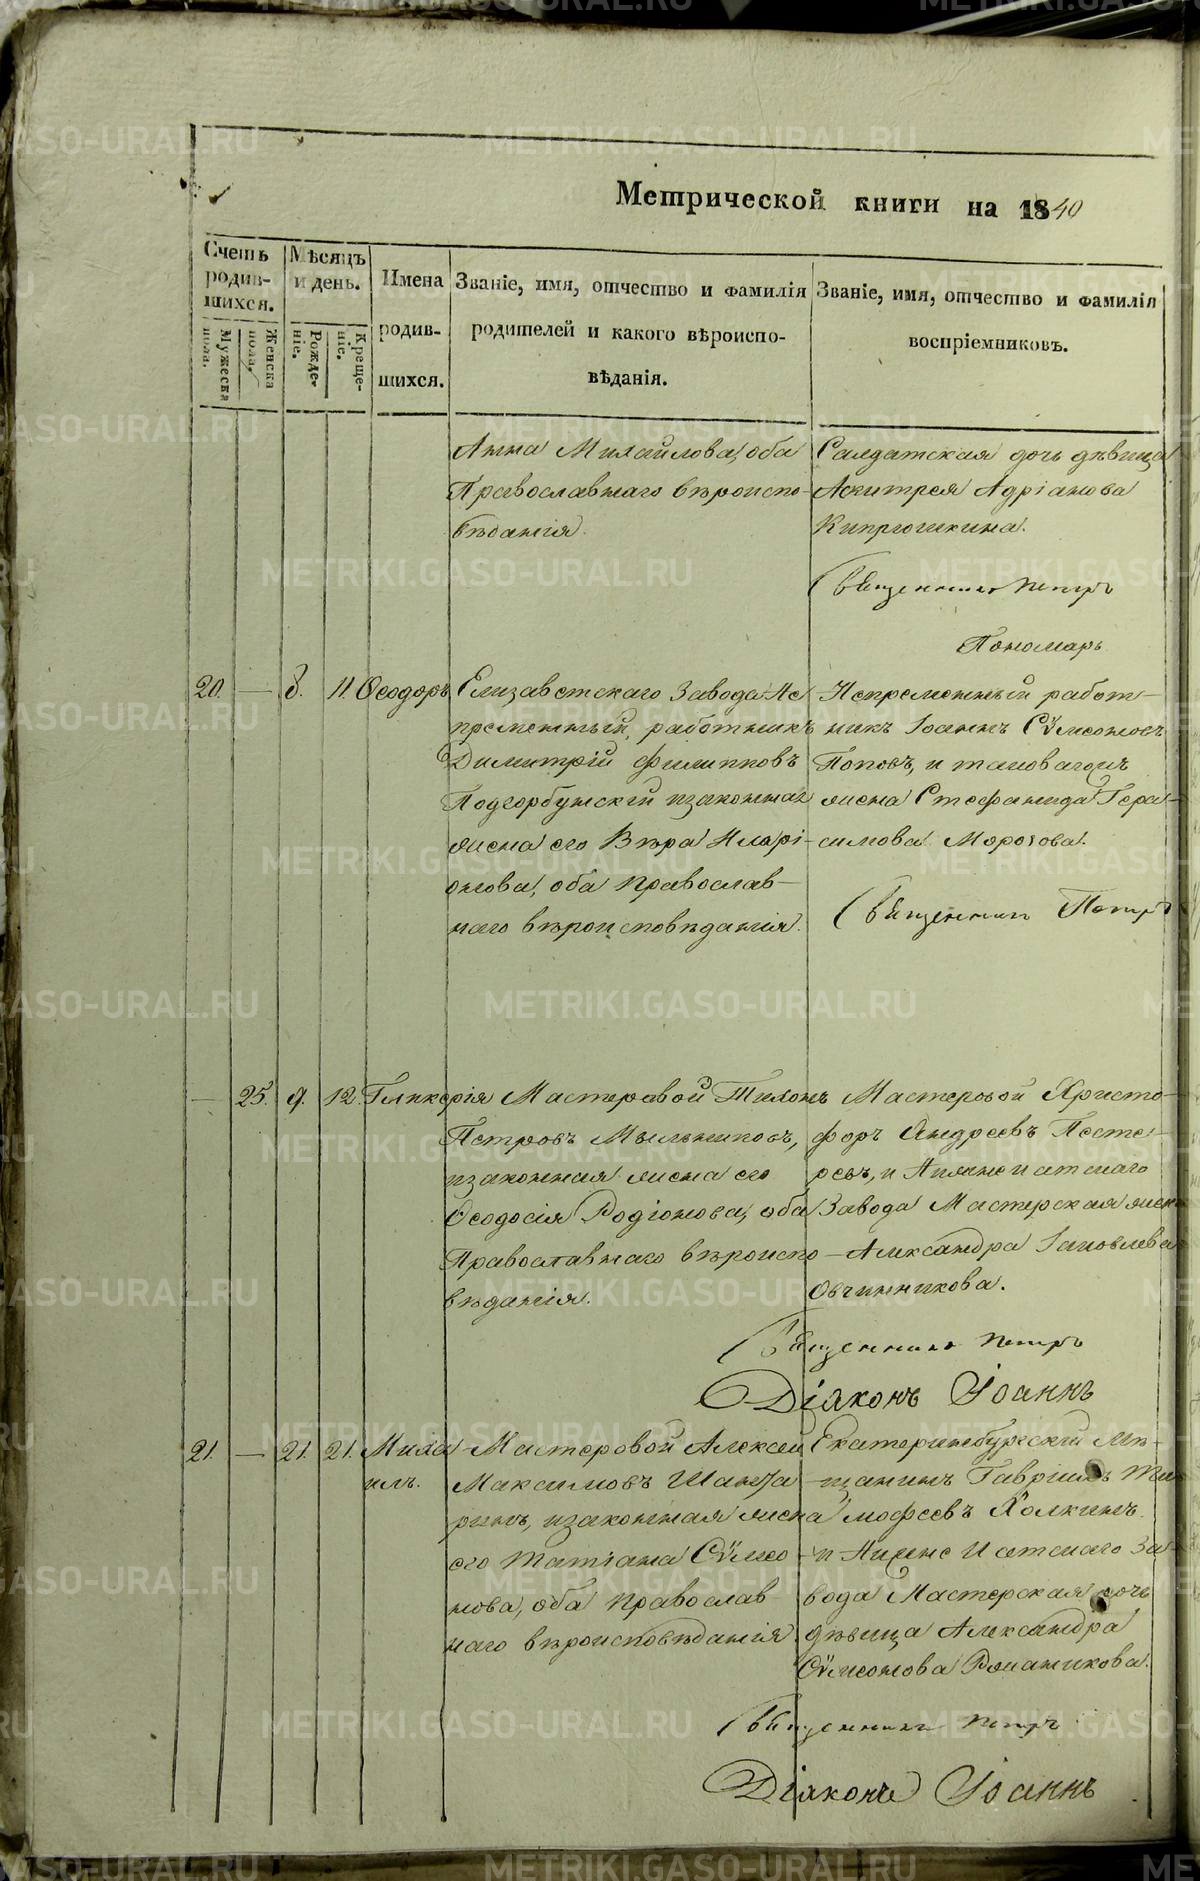 Метрической книги на 1840
Счетъ родившихся.
Мужеска пола.
Женска пола.
Мѣсяцъ и день.
Рожденіе.
Крещеніе.
Имена родившихся.
Званіе, имя, отчество и фамилія родителей и какого вѣроисповѣданія.
Званіе, имя, отчество и фамилія воспріемниковъ.
Анна Михайлова, оба
Православнаго вѣроиспо-
вѣданія.
Салдатская дочь дѣвица
Адріанова
Священникъ Петръ
Пономарь
20. — 8. 11. Ѳеодоръ
Елизаветскаго Завода Не
премѣнный работникъ
Димитрій Филипповъ
Подгорбунскій и законная
жена его Вѣра Иларі-
онова, оба Православ-
наго вѣроисповѣданія.
Непремѣнный работ-
никъ Іоаннъ Сѵмеоновъ
Поповъ, и таковагожъ
жена Стефанида Гера-
симова Морозова.
Священникъ Петръ
— 25. 9. 12. Гликерія
Мастеровой Тихонъ
Петровъ Мыльниковъ,
и законная жена его
Ѳеодосія Родіонова, оба
Православнаго вѣроиспо-
вѣданія.
Мастеровой Христо-
форъ Андреевъ Песте-
ревъ, и Нижнеисетскаго
Завода Мастерская жена
Александра Іаковлева
Овчинникова.
Священникъ Петръ
Діаконъ Іоаннъ
21. — 21. 21. Миха
илъ.
Мастеровой Алексей
Максимовъ
и законная жена
его Татіана Сѵмео-
нова, оба Православ-
наго вѣроисповѣданія.
Екатеринбургскій Мѣ-
щанинъ Гавріилъ Ти
мофеевъ Холкинъ
и Нижнеисетскаго За-
вода Мастерская дочь
дѣвица Александра
Сѵмеонова Романикова.
Священникъ Петръ
Діаконъ Іоаннъ
METRIKI.GASO-URAL.RU